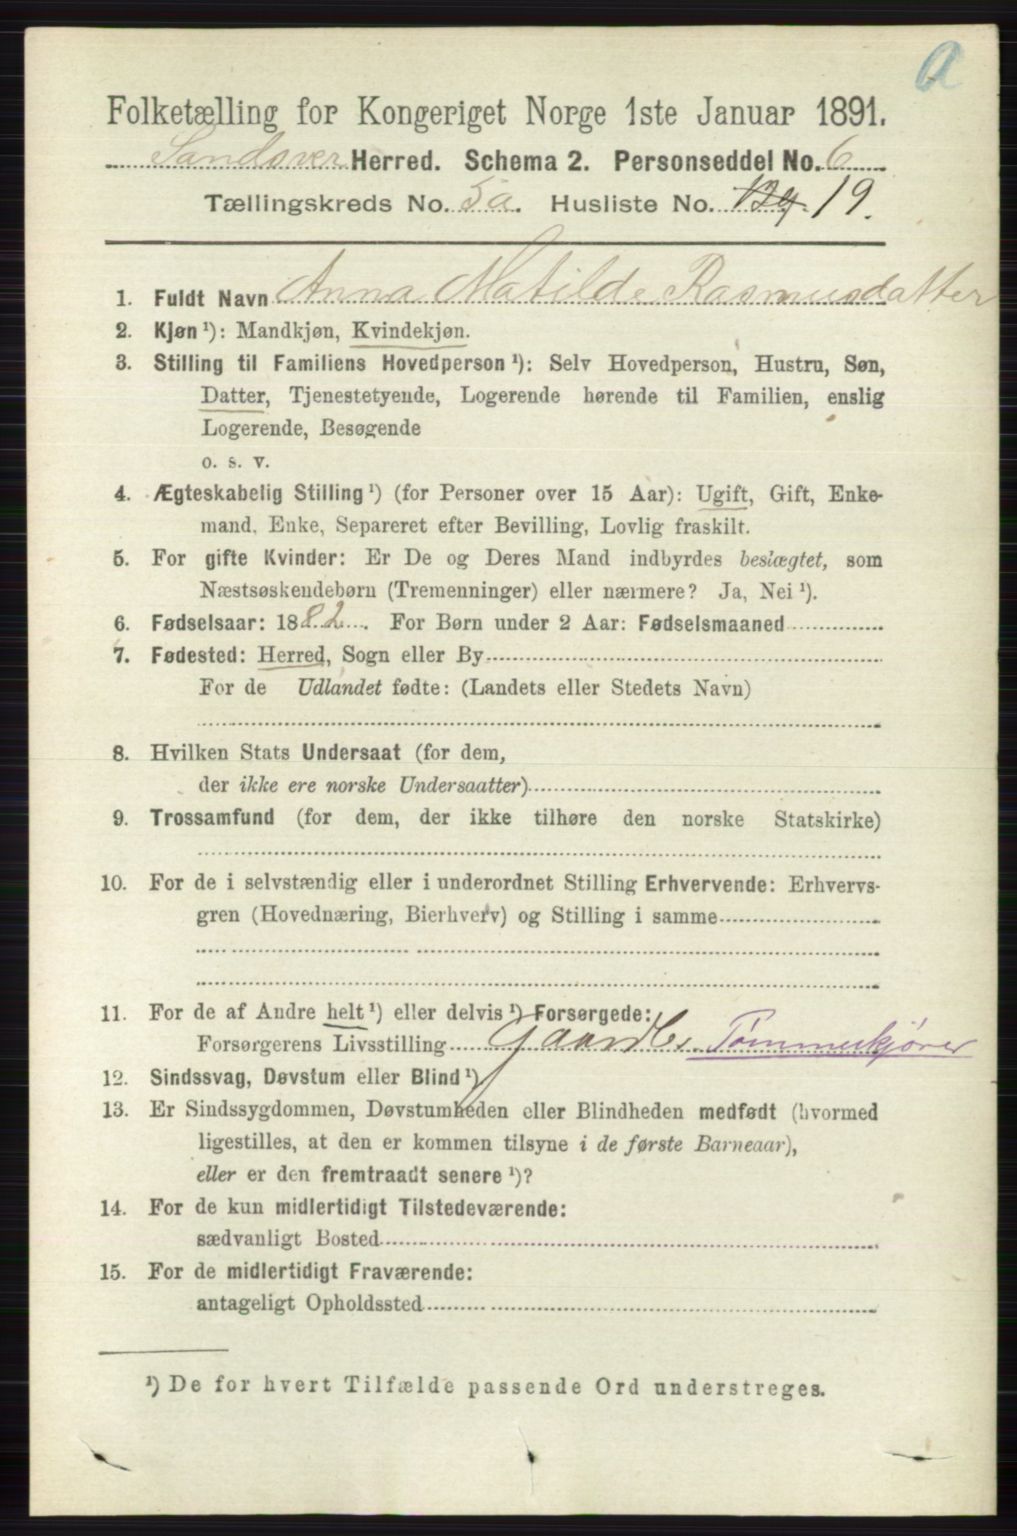 a
Folketælling for Kongeriget Norge 1ste Januar 1891.
Sandsver Herred. Schema 2. Personseddel No. 6
Tællingskreds No. 5a. Husliste No. 19.
1. Fuldt Navn Anna Matilde Rasmusdatter
2. Kjøn ¹): Mandkjøn, Kvindekjøn.
3. Stilling til Familiens Hovedperson ¹): Selv Hovedperson, Hustru, Søn,
Datter, Tjenestetyende, Logerende hørende til Familien, enslig
Logerende, Besøgende
o. s. v.
4. Ægteskabelig Stilling ¹) (for Personer over 15 Aar): Ugift, Gift, Enke-
mand, Enke, Separeret efter Bevilling, Lovlig fraskilt.
5. For gifte Kvinder: Er De og Deres Mand indbyrdes beslægtet, som
Næstsøskendebørn (Tremenninger) eller nærmere? Ja, Nei ¹).
6. Fødselsaar: 1882. For Børn under 2 Aar: Fødselsmaaned
7. Fødested: Herred, Sogn eller By
For de Udlandet fødte: (Landets eller Stedets Navn)
8. Hvilken Stats Undersaat (for dem,
der ikke ere norske Undersaatter)
9. Trossamfund (for dem, der ikke tilhøre den norske Statskirke)
10. For de i selvstændig eller i underordnet Stilling Erhvervende: Erhvervs-
gren (Hovednæring, Bierhverv) og Stilling i samme
11. For de af Andre helt ¹) eller delvis ¹) Forsørgede:
Forsørgerens Livsstilling Gaardbr. Tømmerkjører
12. Sindssvag, Døvstum eller Blind ¹)
13. Er Sindssygdommen, Døvstumheden eller Blindheden medfødt (hvormed
ligestilles, at den er kommen tilsyne i de første Barneaar),
eller er den fremtraadt senere ¹)?
14. For de kun midlertidigt Tilstedeværende:
sædvanligt Bosted
15. For de midlertidigt Fraværende:
antageligt Opholdssted
¹) De for hvert Tilfælde passende Ord understreges.